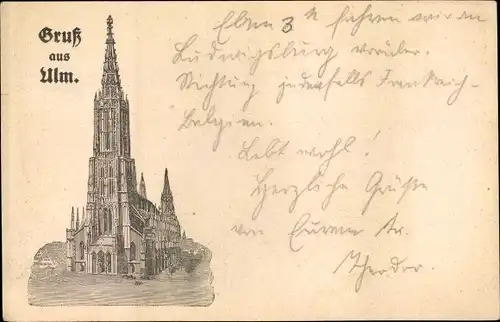 Gruß
aus
Ulm.
Eben 3 h fahren wir an
Ludwigsburg vorüber.
Richtung jedenfalls Frankreich-
Belgien.
Lebt wohl!
Herzliche Grüße
von Eurem
Theodor.